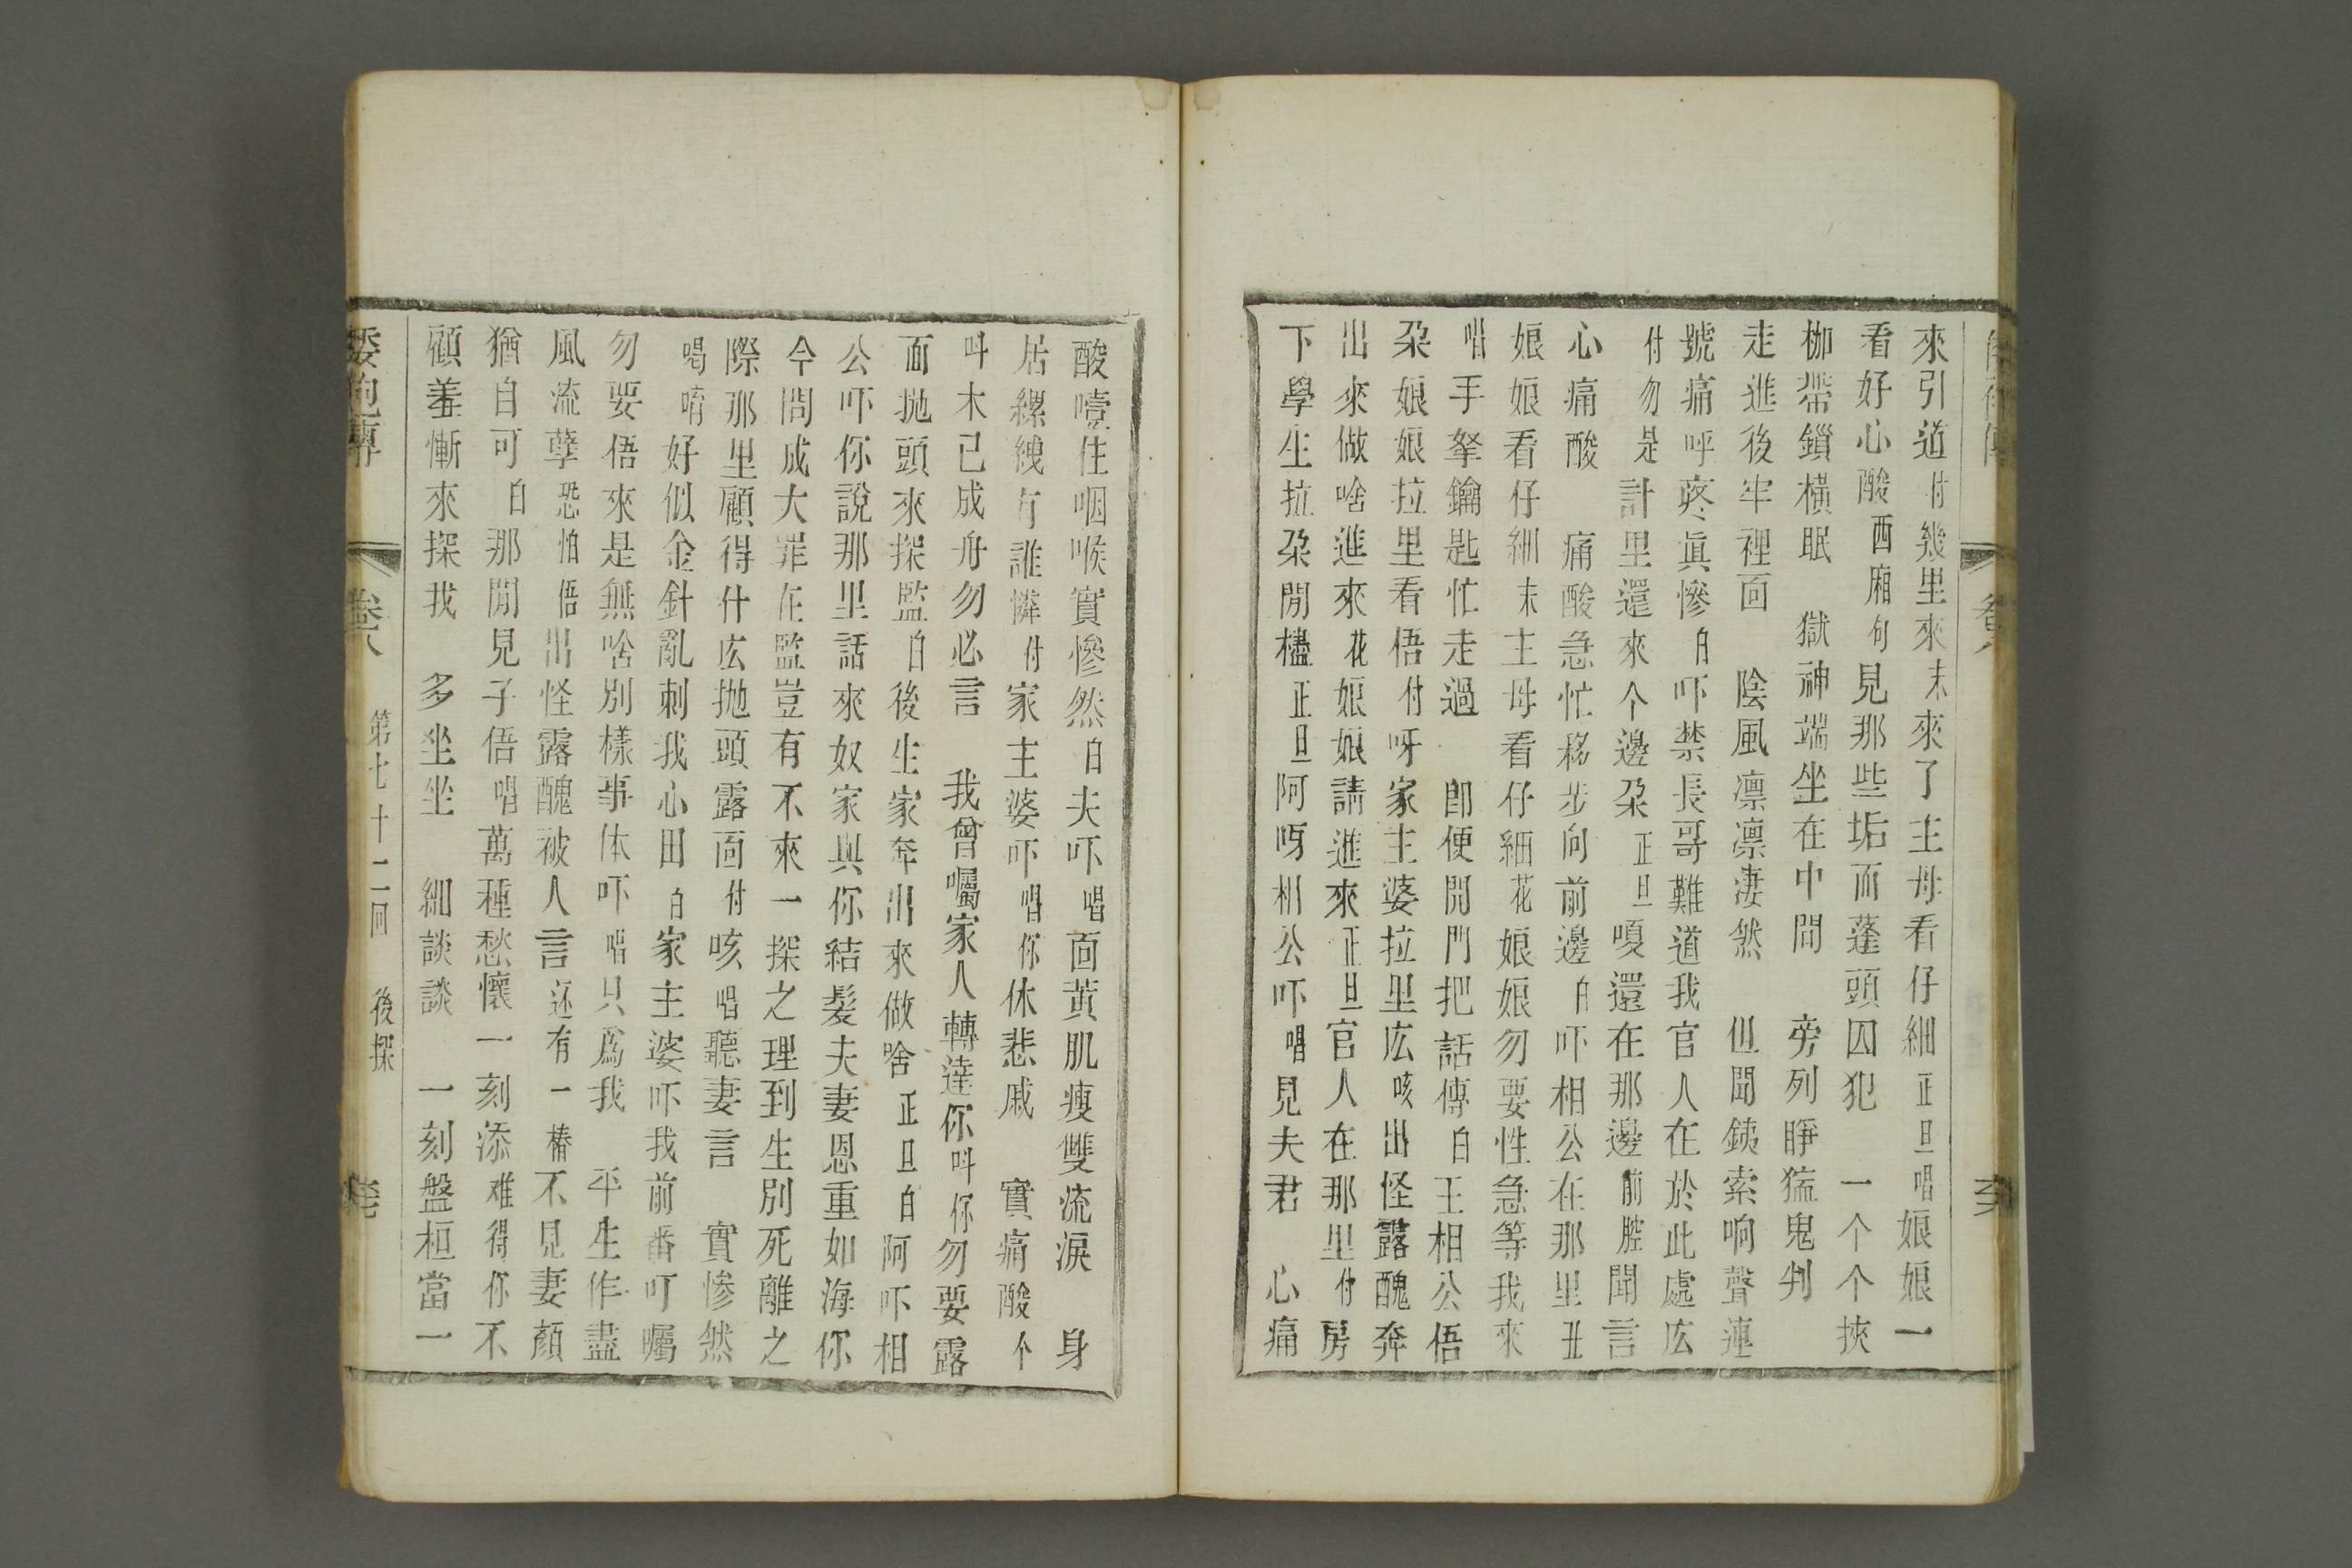 來引道付幾里來末來了主母看仔細正旦唱娘娘一
看好心酸西廂句見那些垢面蓬頭囚犯 一个个挾
枷帶鎖橫眠 獄神端坐在中間 旁列睜猛鬼判
走進後牢裡面 陰風凛凛凄然 但聞鉄索响聲連
號痛呼疼真慘白吓禁長哥難道我官人在於此處庅
付勿是計里還來个邊朶正旦嗄還在那邊前腔聞言
心痛酸 痛酸急忙移步向前邊白吓相公在那里丑
娘娘看仔細末主母看仔細花娘娘勿要性急等我來
唱手拏鑰匙忙走過 即便開門把話傳白王相公悟
朶娘娘拉里看悟付呀家主婆拉里庅咳出怪露醜奔
出來做啥進來花娘娘請進來正旦官人在那里付房
下學生拉朶閒櫺正旦阿呀相公吓唱見夫君 心痛
酸噎住咽喉實慘然白夫吓唱面黄肌瘦雙流淚 身
居縲絏有誰憐付家主婆吓唱你休悲戚 實痛酸个
呌木已成舟勿必言 我曾囑家人轉達你呌你勿要露
面拋頭來探監白後生家奔出來做啥正旦白阿吓相
公吓你說那里話來奴家與你結髪夫妻恩重如海你
今問成大罪在監豈有不來一探之理到生別死離之
際那里顧得什庅拋頭露面付咳唱聽妻言 實慘然
喝唷好似金針亂刺我心田白家主婆吓我前番叮囑
勿要悟來是無啥別樣事体吓唱只爲我 平生作盡
風流孽恐怕悟出怪露醜被人言还有一樁不見妻顏
猶自可白那間見子悟唱萬種愁懷一刻添难得你不
顧羞慚來探我 多坐坐 細談談 一刻盤桓當一
倭袍傳 卷八 第七十二回 後探